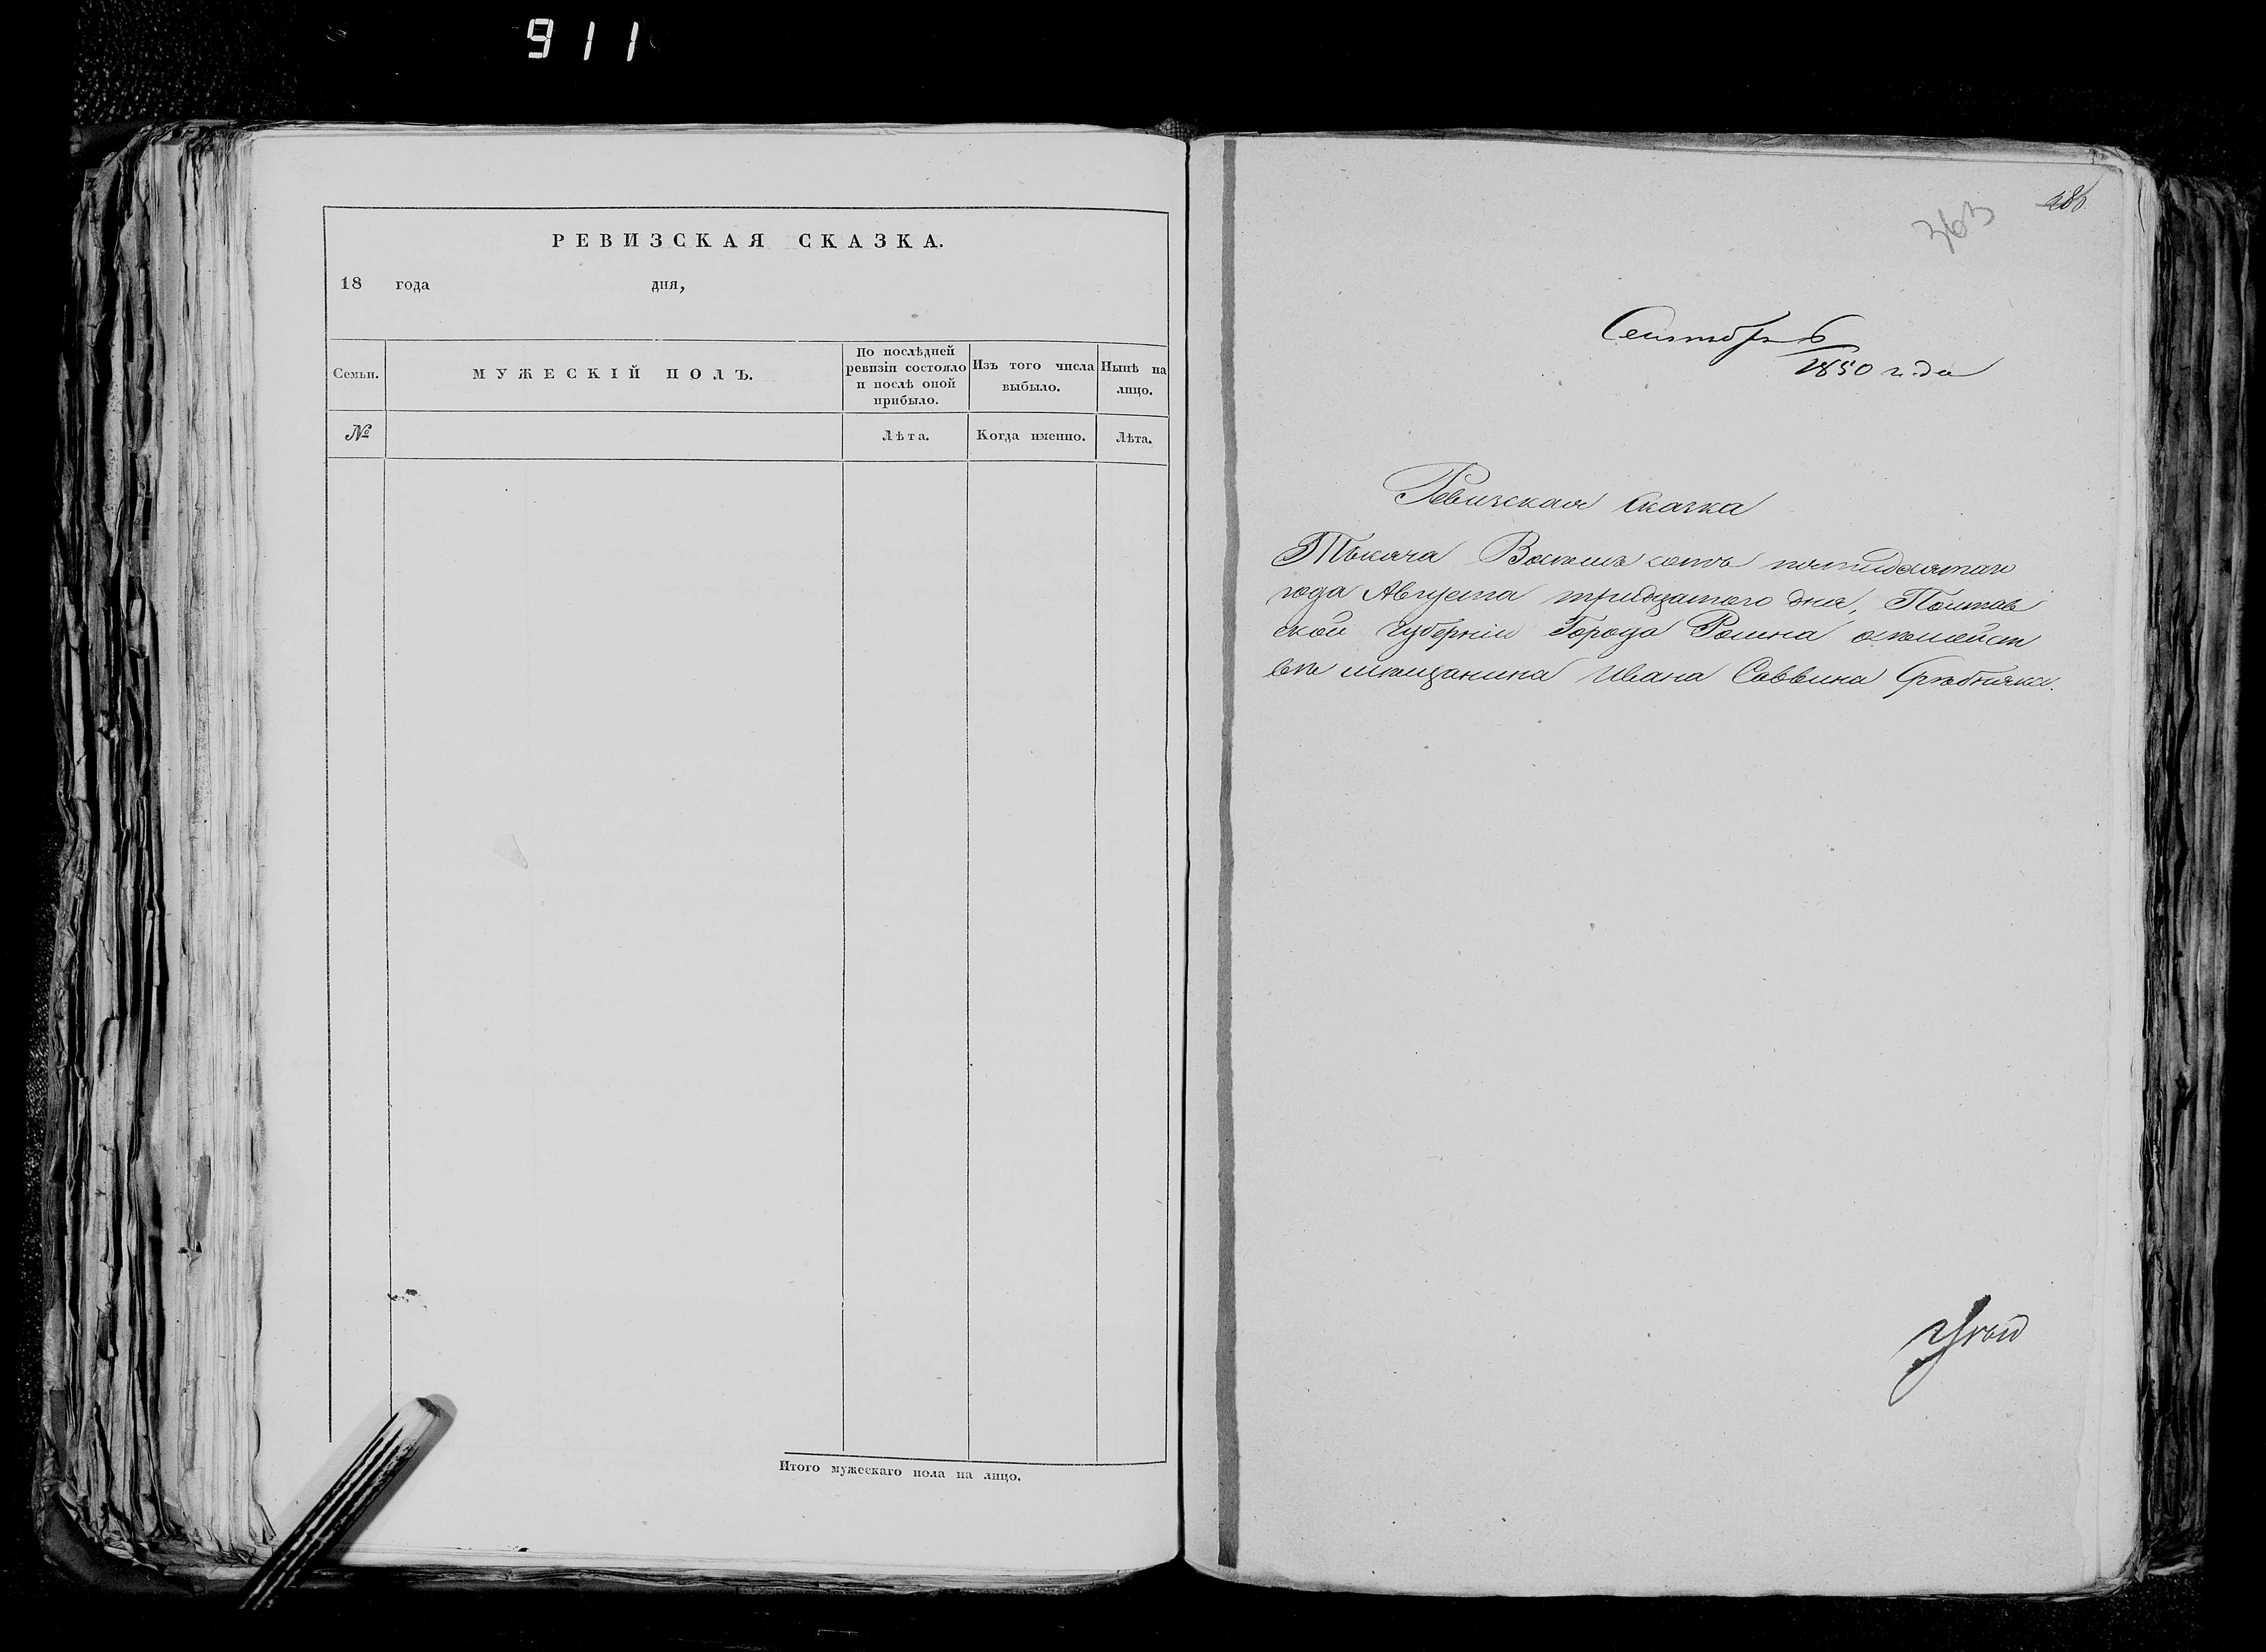 911
РЕВИЗСКАЯ СКАЗКА.
18 года дня,
Семьи.
МУЖЕСКІЙ ПОЛЪ.
По послѣдней ревизіи состояло и послѣ оной прибыло.
Изъ того числа выбыло.
Нынѣ на лицо.
№
Лѣта.
Когда именно.
Лѣта.
Итого мужескаго пола на лицо.
363
Сентябр 6
1850 года
Ревизская Сказка
Тысяча Восемь сотъ пятидесятаго
года Августа тридцатого дня, Полтав
ской Губерніи Города Ромна
мещанина Ивана Саввина